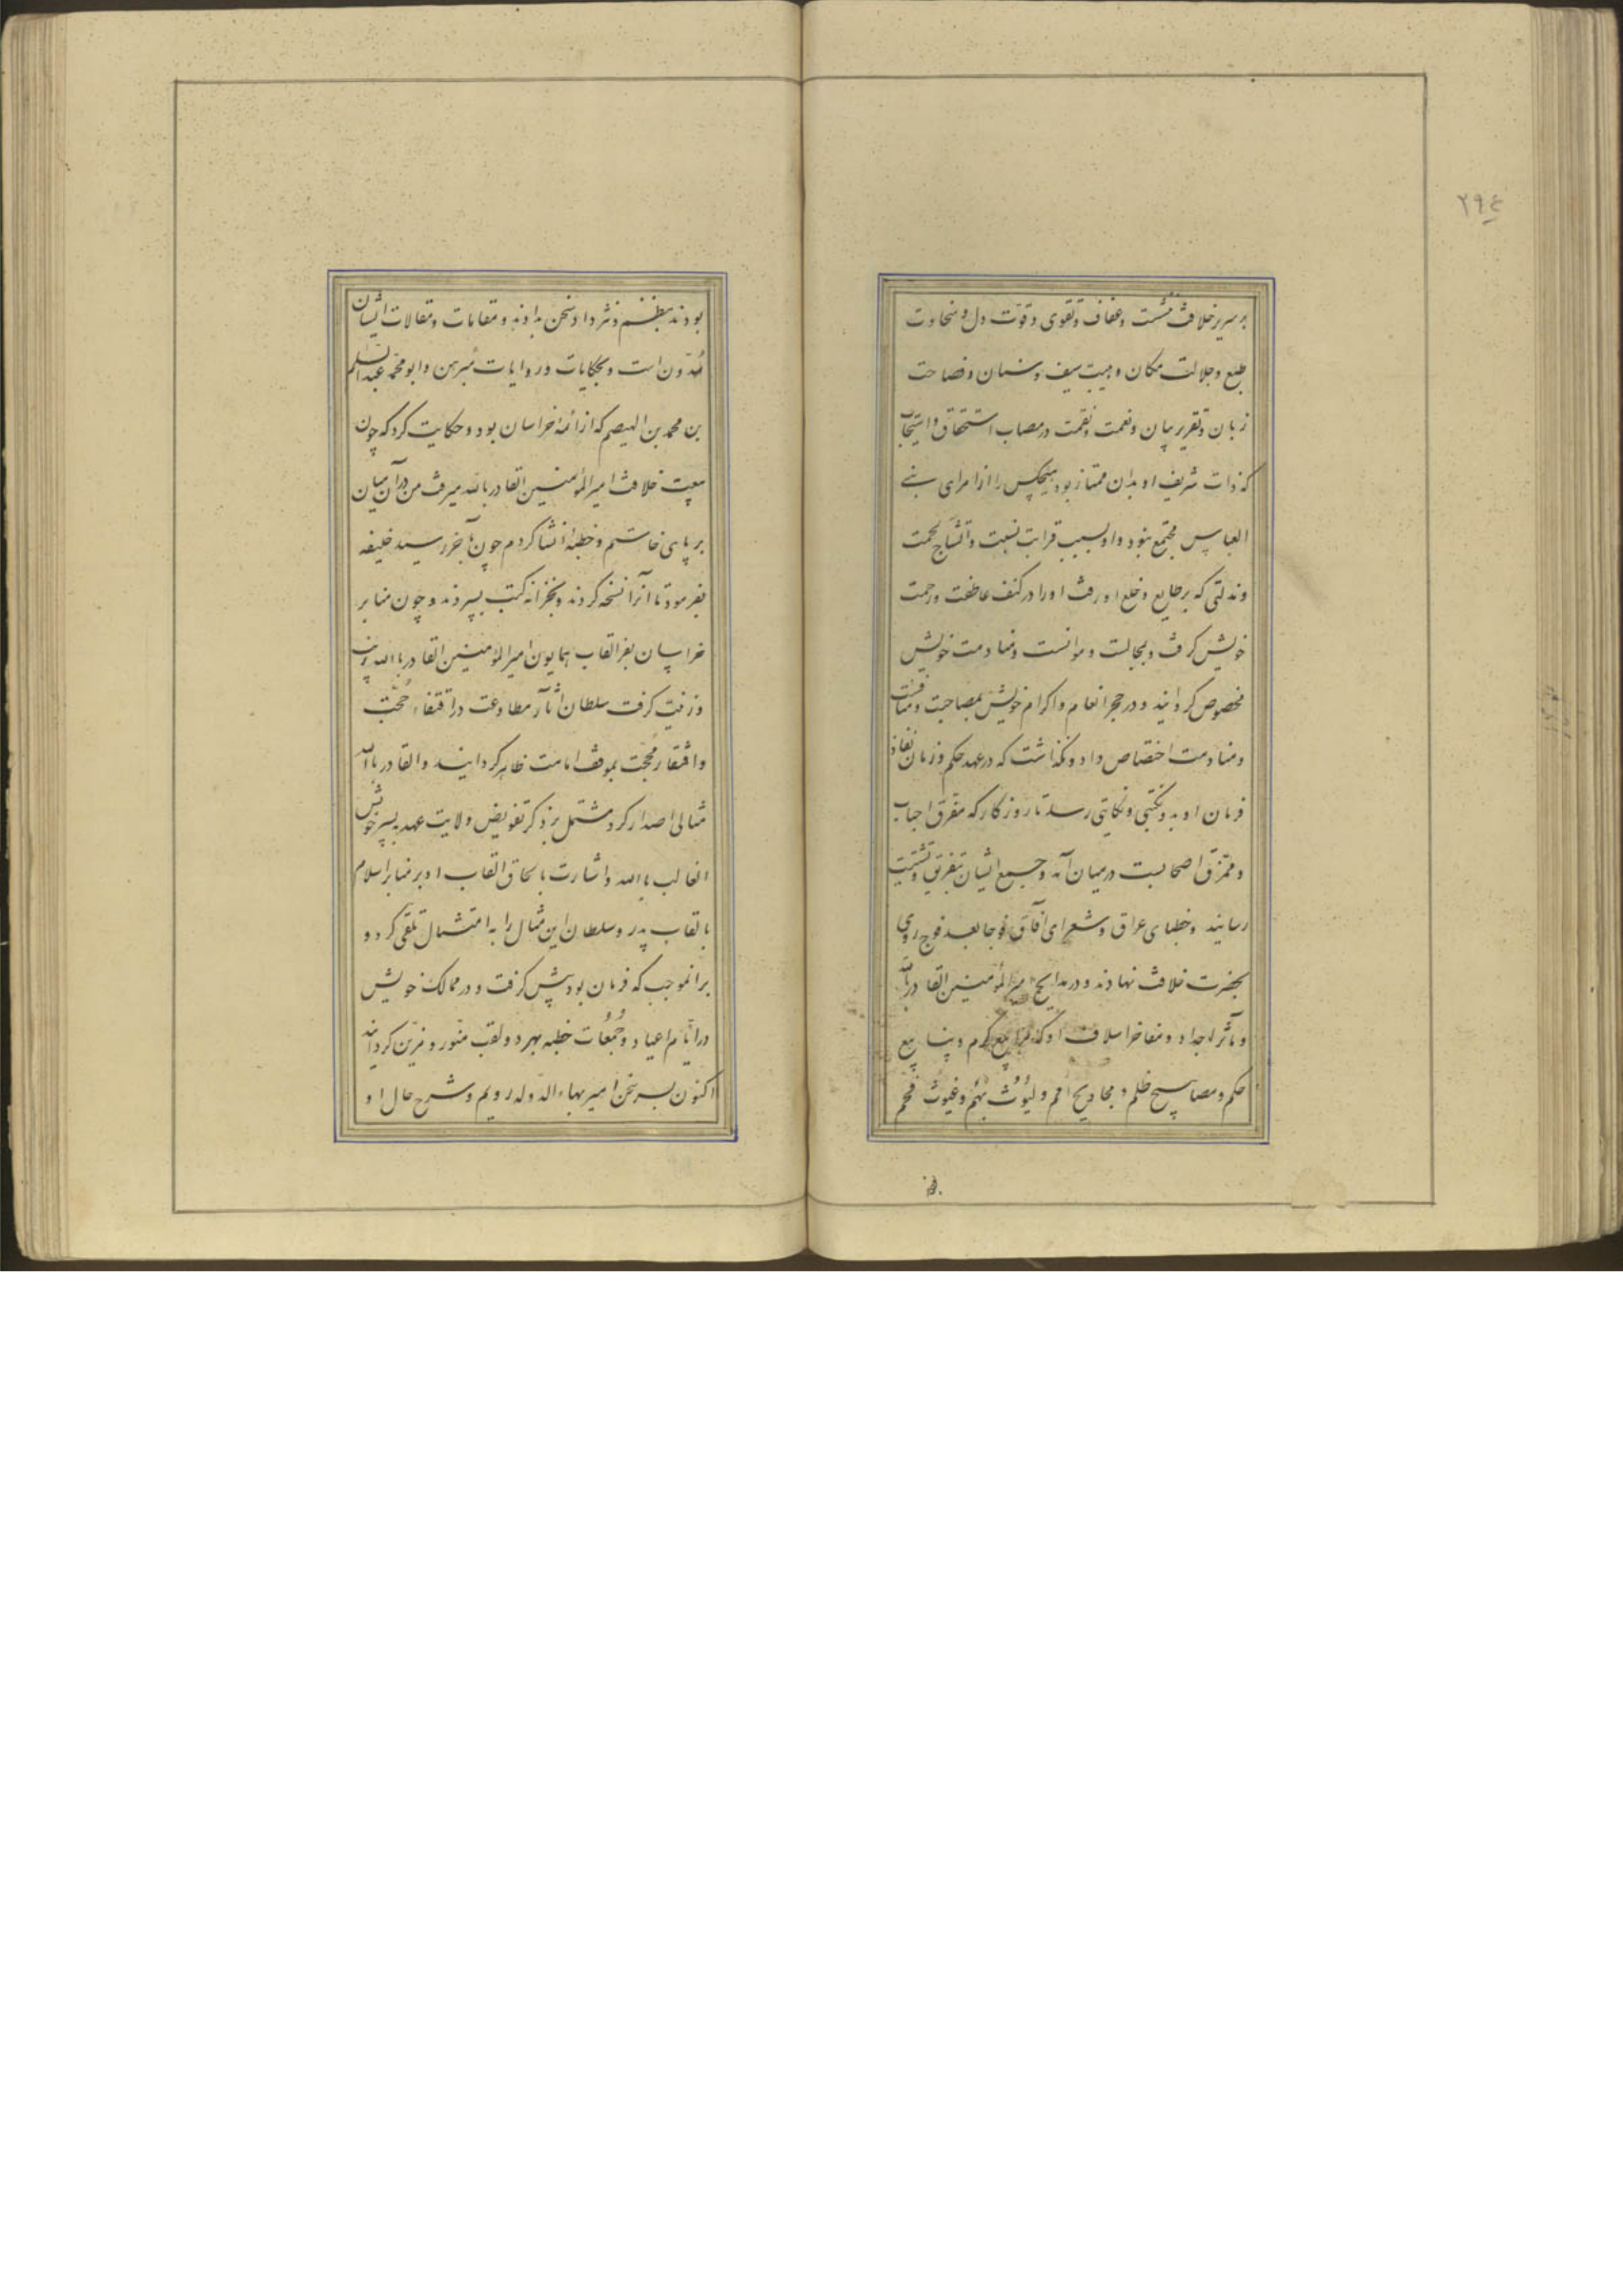 ۲۹٤
بر سریر خلافت ننشست و عفاف و تقوی و قوّت دل و سخاوت
طبع و جلالت مکان و هیبت سیف و سنان و فصاحت
زبان و تقریر بیان و نعمت و نقمت در مصاب استحقاق و استیجاب
که ذات شریف او بدان ممتاز بود هیچکس را از امرای بنی
العباس مجتمع نبود و او بسبب قرابت نسبت و اتشاج لحمت
و ندلتی که بر طایع و خلع او رفت او را در کنف عاطفت و رحمت
خویش گرفت و بمجالست و موانست و منادمت خویش
مخصوص گردانید و در حجر انعام و اکرام خویش بمصاحبت و منافثت
و منادمت اختصاص داد و نگذاشت که در عهد حکم و زمان نفاذ
فرمان او بدو نکبتی و نکایتی رسد تا روزگار که مفرق احباب
و ممزّق اصحابست در میان آمد و جمیع ایشان بتفریق و تشتیت
رسانید و خطبای عراق و شعرای آفاق فوجا بعد فوج روی
بحضرت خلافت نهادند و در مدایح امیر المؤمنین القادر بالله
و مآثر اجداد و مفاخر اسلاف او که مرابیع کرم و ینابیع
حکم و مصابیح ظلم و مجادیح امم و لیُوُث بُهَم و غیوث قحم
بودند بنظم و نثر داد سخن بدادند و مقامات و مقالات ایشان
مُدوّن است و بحکایات و روایات مبرهن و ابو محمّد عبد السلم
بن محمد بن الهیصم که از ائمۀ خراسان بود و حکایت کرد که چون
بیعت خلافت امیر المؤمنین القادر بالله میرفت من در آن میان
بر پای خاستم و خطبۀ انشا کردم چون بآخر رسید خلیفه
بفرمود تا آنرا نسخه کردند و بخزانه کتب بسپردند و چون منابر
خراسان بفرّ القاب همایون امیر المؤمنین القادر بالله زیب
و زینت گرفت سلطان آثار مطاوعت در اقتفاء حُجّت
و افتقار محجّت بموقف امامت ظاهر گردانید و القادر بالله
مثالی اصدار کرد مشتمل بر ذکر تفویض ولایت عهد به پسر خویش
الغالب بالله و اشارت بالحاق القاب او بر منابر اسلام
بالقاب پدر و سلطان این مثال را به امتثال تلقی کرد و
بر آنموجب که فرمان بود پیش گرفت و در ممالک خویش
در ایّام اعیاد و جُمُعات خطبه بهر دو لقب منّور و مزیّن گردانید
اکنون بسر سخن امیر بهاء الدّوله رویم و شرح حال او